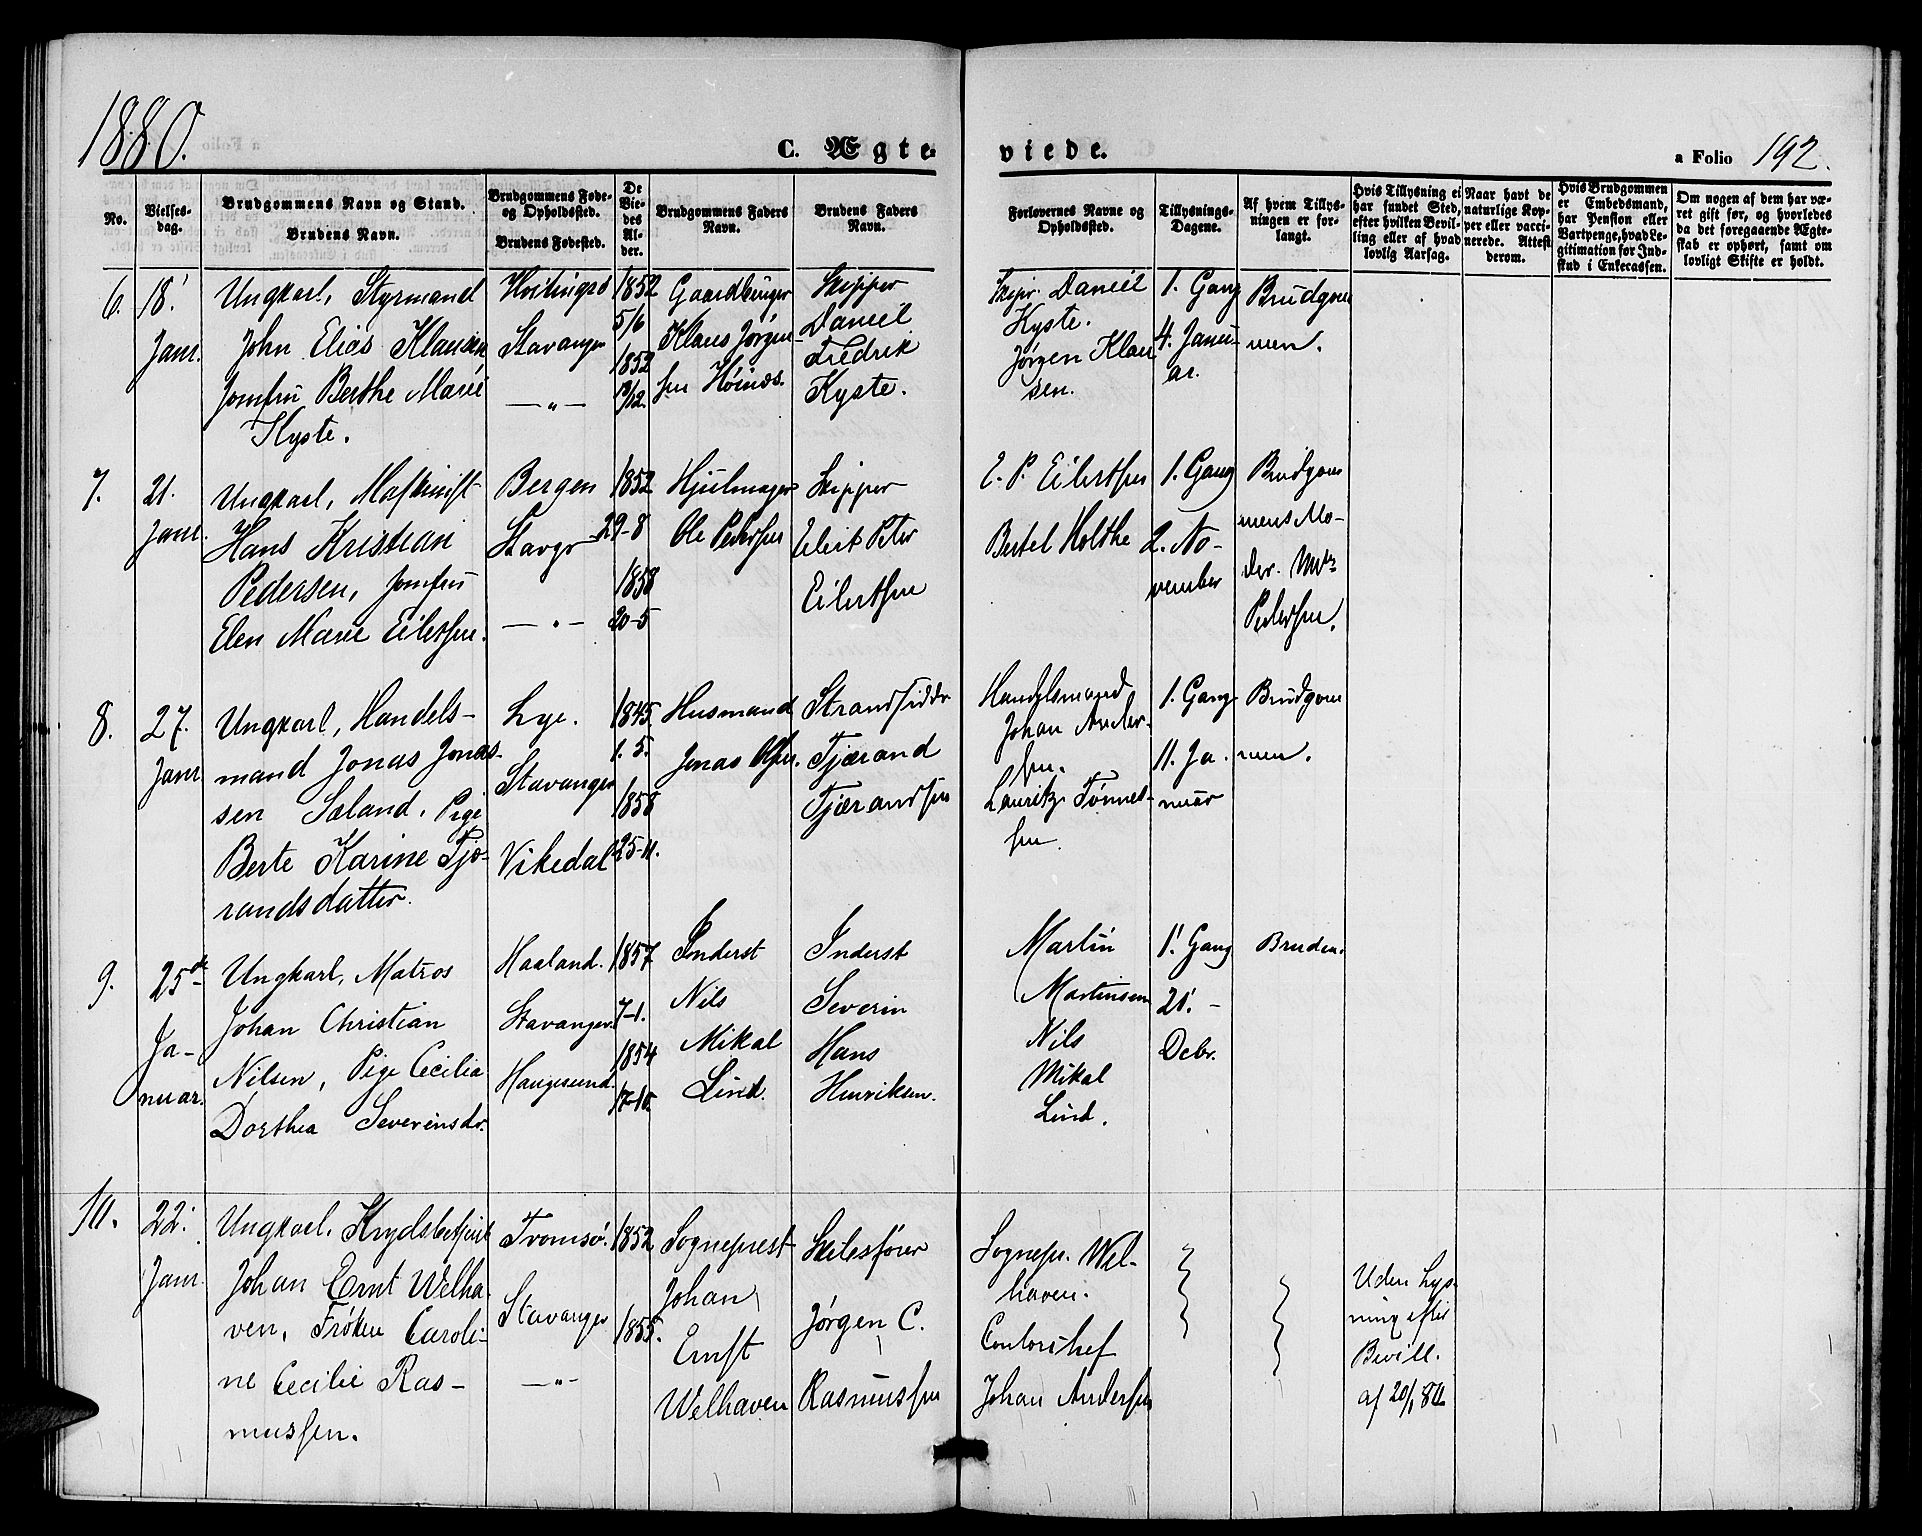 1880.
C. Ægte-
viede.
a Folio 192.
No.
Vielses-
dag.
Brudgommens Navn og Stand.
Brudens Navn.
Brudgommens Føde-
og Opholdssted.
Brudens Fødested.
De
Vie-
des
Al-
der.
Brudgommens Faders
Navn.
Brudens Faders
Navn.
Forlovernes Navne og
Opholdssted.
Tillysnings-
Dagene.
Af hvem Tillys-
ningen er for-
langt.
Hvis Tillysning ei
har fundet Sted,
efter hvilken Bevil-
ling eller af hvad
lovlig Aarsag.
Naar havt de
naturlige Kop-
per eller vacci-
nerede. Attest
derom.
Hvis Brudgommen
er Embedsmand,
har Pension eller
Vartpenge, hvad Le-
gitimation for Ind-
skud i Enkecassen.
Om nogen af dem har væ-
ret gift før, og hvorledes
da det foregaaende Ægte-
skab er ophørt, samt om
lovligt Skifte er holdt.
6.
18'
Janr.
Ungkarl, Styrmand
John Elias Klausen
Jomfru Berthe Marie
Kyste.
Hvitingsø
Stavanger
—„—
1852
5/6
1852
/12.
Gaardbruger
Klaus Jørgen-
sen Høines.
Skipper
Daniel
Fredrik
Kyste.
Skipr. Daniel
Kyste.
Jørgen Klau
sen.
1. Gang
4. Janu-
ar.
Brudgom
men.
7.
21.
Janr.
Ungkarl, Maskinist
Hans Kristian
Pedersen, Jomfru
Elen Marie Eilertsen.
Bergen
Stavgr
—„—
1852
29-8
1858
20-5
Hjulmager
Ole Pedersen
Skipper
Eilert Peter
Eilertsen
E. P. Eilertsen
Bertel Holthe
1. Gang
2. No-
vember
Brudgom
mens Mo-
der.
Pedersen.
8.
27.
Janr
Ungkarl, Handels-
mand Jonas Jonas-
sen Sæland. Pige
Berte Karine Tjæ-
randsdatter.
Lye.
Stavanger
Vikedal
1845.
1. 5.
1858
25-11.
Husmand
Jonas Olsen.
Strandsidder
Tjærand
Tjærandsen
Handelsmand
Johan Ander-
sen.
Lauritz Tønnes-
sen.
1. Gang
11. Ja-
nuar
Brudgom
men.
9.
25de
Ja-
nuar.
Ungkarl, Matros
Johan Christian
Nilsen, Pige Cecilia
Dorthea Severinsdr.
Haaland.
Stavanger.
Haugesund.
1857
7-1.
1854
17-10.
Inderst
Nils
Mikal
Lind.
Inderst
Severin
Hans
Henriksen.
Martin
Martinsen
Nils
Mikal
Lind.
1'. Gang
21'. –
Debr.
Bruden.
10.
22.
Janr.
Ungkarl, Krydsbetjent
Johan Ernt Welha-
ven, Frøken Caroli-
ne Cecilie Ras-
mussen.
Tromsø.
Stavanger
—„—
1852
1855.
Sogneprest
Johan
Ernst
Welhaven
Skibsfører
Jørgen C.
Rasmussen
Sognepr. Wel-
haven.
Contorchef
Johan Andersen
Uden Lys-
ning efter
Bevill.
af 20/1 80.